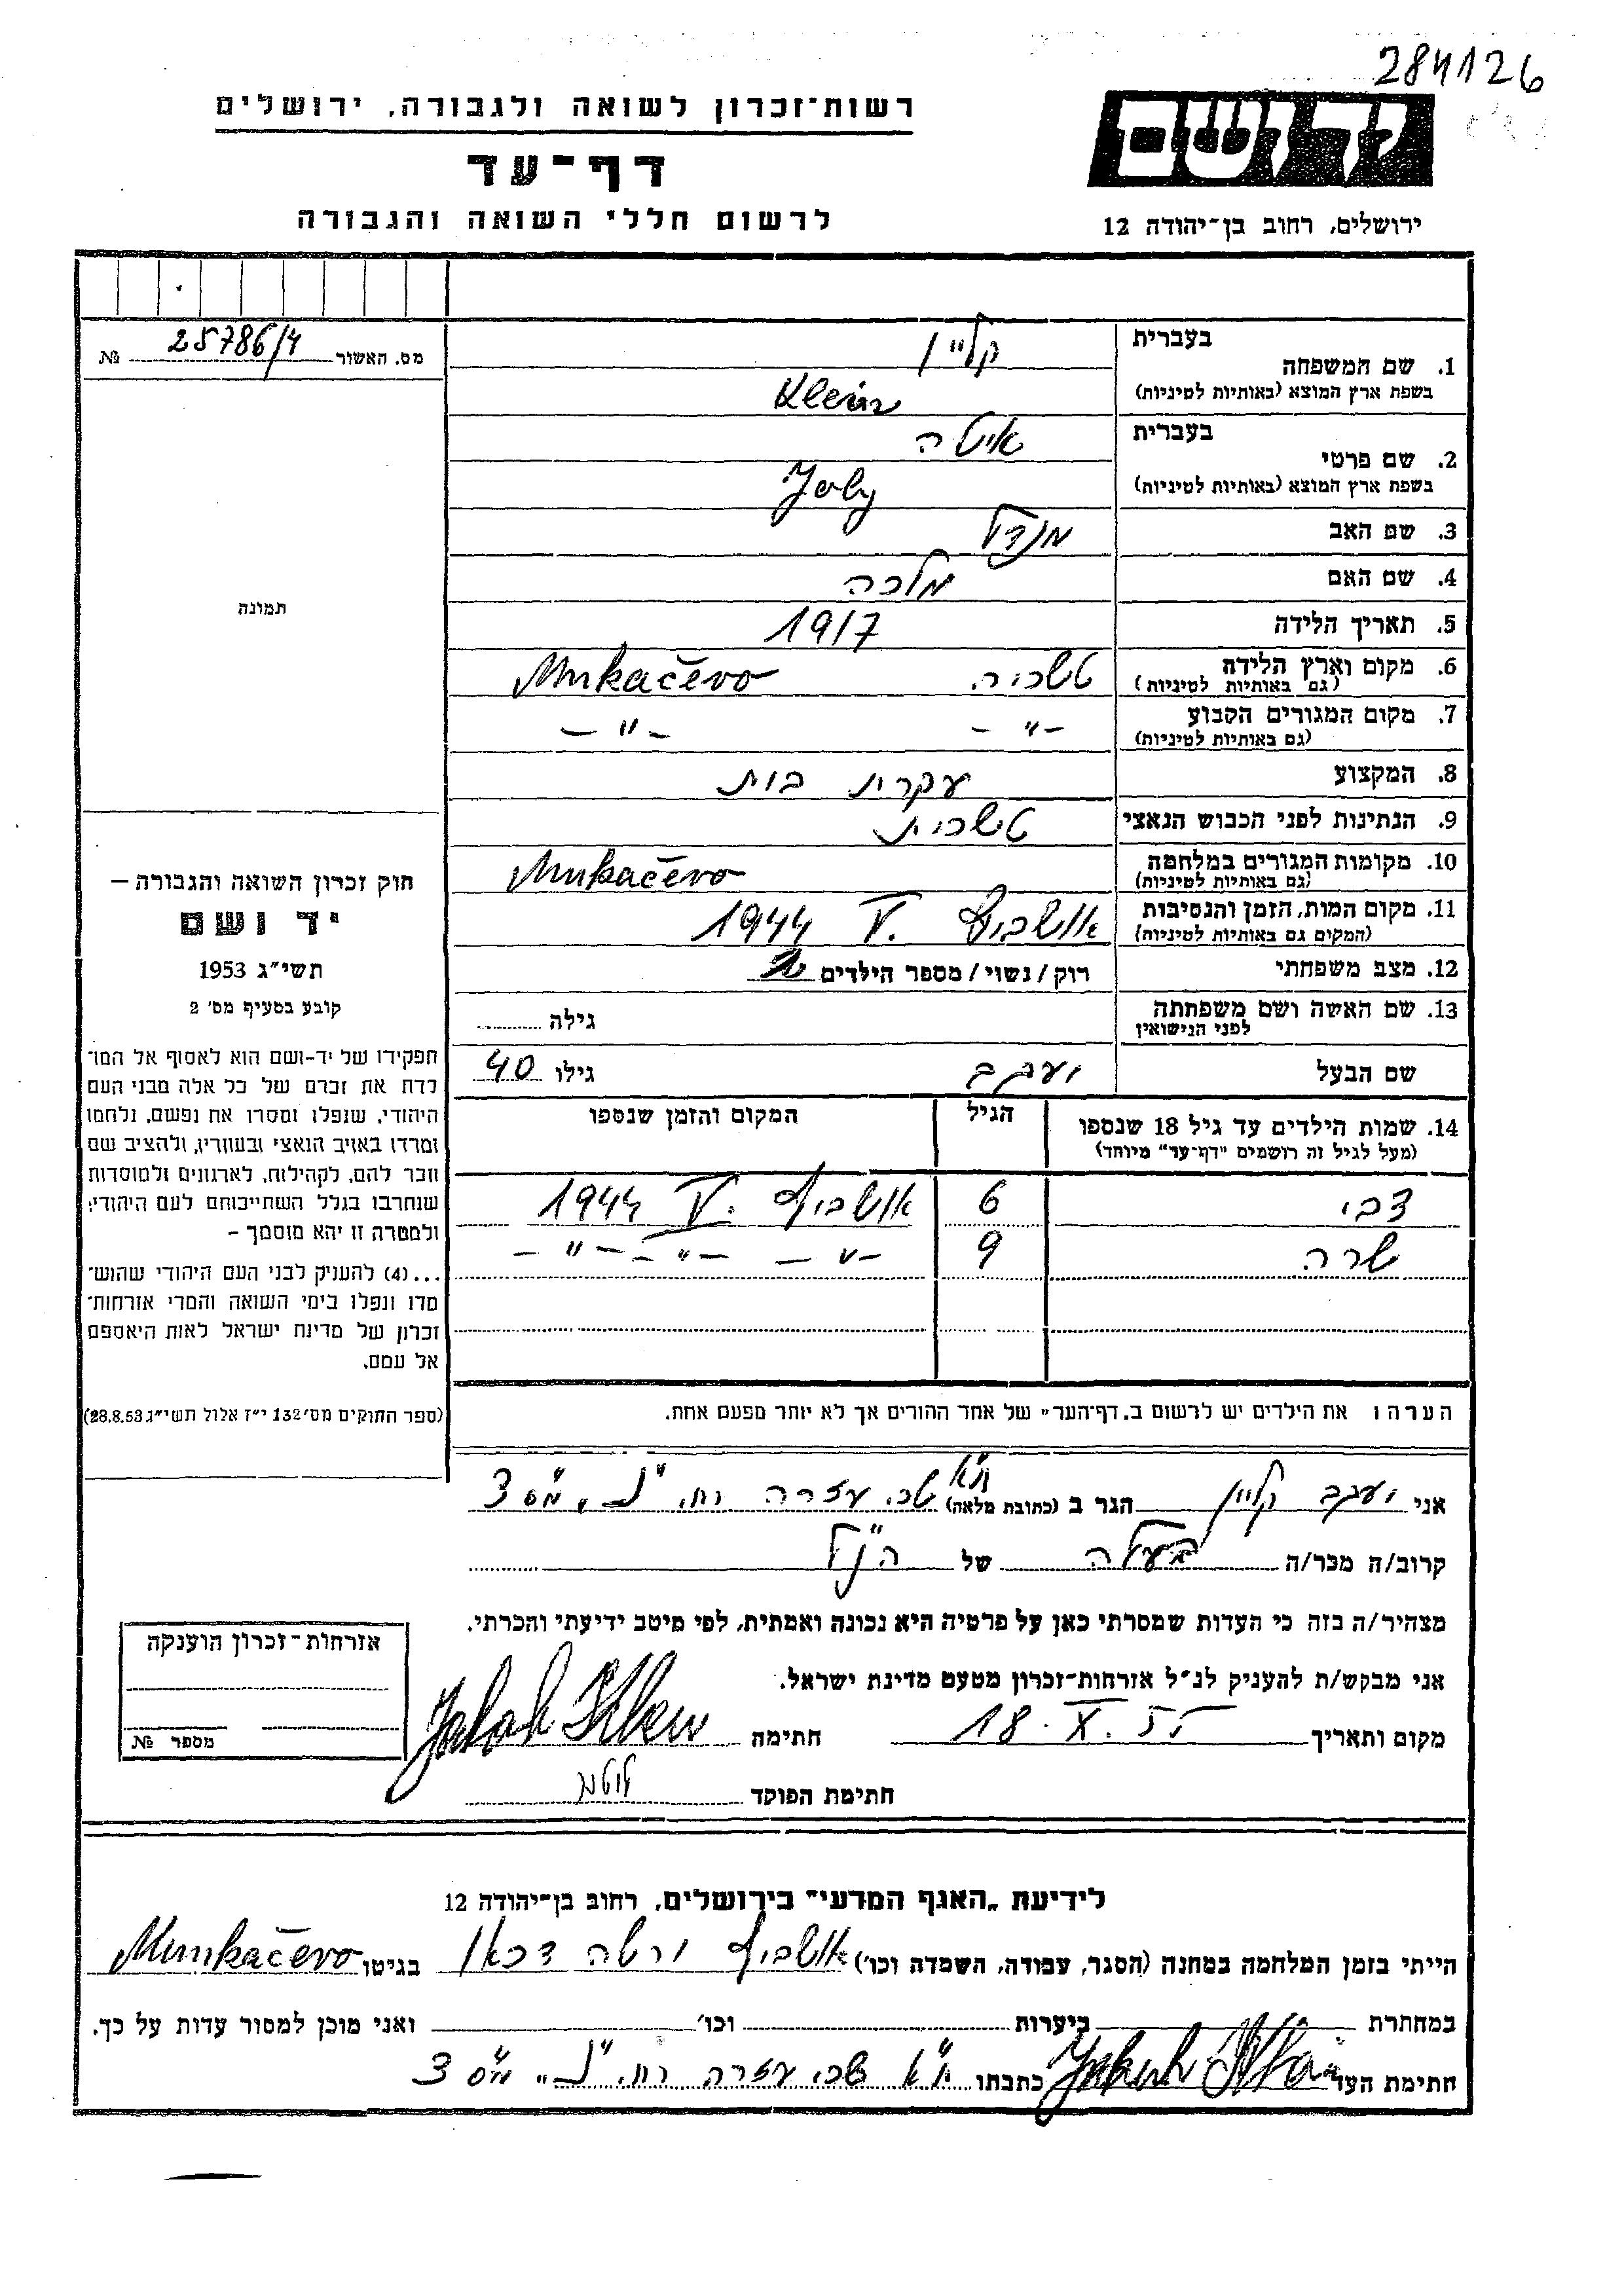 284126
רשות־זכרון לשואה ולגבורה, ירושלים
יד ושם
דף־עד
לרשום חללי השואה והגבורה
ירושלים, רחוב בן־יהודה 12
מס. האשור 25786/4 №
תמונה
חוק זכרון השואה והגבורה —
יד ושם
תשי״ג 1953
קובע בסעיף מס׳ 2
תפקידו של יד-ושם הוא לאסוף אל המו־
לדת את זכרם של כל אלה מבני העם
היהודי, שנפלו ומסרו את נפשם, נלחמו
ומרדו באויב הנאצי ובעוזריו, ולהציב שם
וזכר להם, לקהילות, לארגונים ולמוסדות
שנחרבו בגלל השתייכותם לעם היהודי;
ולמטרה זו יהא מוסמך –
...(4) להעניק לבני העם היהודי שהוש־
מדו ונפלו בימי השואה והמרי אזרחות־
זכרון של מדינת ישראל לאות היאספם
אל עמם.
(ספר החוקים מס׳ 132 י״ז אלול תשי״ג 28.8.53)
1. שם המשפחה
בעברית קליין
בשפת ארץ המוצא (באותיות לטיניות) Klein
2. שם פרטי
בעברית איטה
בשפת ארץ המוצא (באותיות לטיניות)
3. שם האב מנדל
4. שם האם מלכה
5. תאריך הלידה 1917
6. מקום וארץ הלידה (גם באותיות לטיניות) טשכיה Mukačevo
7. מקום המגורים הקבוע (גם באותיות לטיניות) –״– –״–
8. המקצוע עקרית בית
9. הנתינות לפני הכבוש הנאצי טשכית
10. מקומות המגורים במלחמה (גם באותיות לטיניות) Mukačevo
11. מקום המות, הזמן והנסיבות (המקום גם באותיות לטיניות) אושביץ V. 1944
12. מצב משפחתי רוק/נשוי/מספר הילדים 2
13. שם האשה ושם משפחתה לפני הנישואין גילה
שם הבעל יעקב גילו 40
14. שמות הילדים עד גיל 18 שנספו
(מעל לגיל זה רושמים "דף־עד" מיוחד)
הגיל
המקום והזמן שנספו
צבי 6 אושביץ V. 1944
שרה 9 –״– –״– –״–
הערה: את הילדים יש לרשום ב„דף־העד״ של אחד ההורים אך לא יותר מפעם אחת.
אני יעקב קליין הגר ב (כתובת מלאה) ת״א שכ. עזרה רח.
קרוב/ה מכר/ה בעלה של הנ״ל
מצהיר/ה בזה כי העדות שמסרתי כאן על פרטיה היא נכונה ואמתית, לפי מיטב ידיעתי והכרתי.
אני מבקש/ת להעניק לנ״ל אזרחות־זכרון מטעם מדינת ישראל.
מקום ותאריך 18.X.55 חתימה
חתימת הפוקד
אזרחות־זכרון הוענקה
מספר №
לידיעת „האגף המדעי״ בירושלים, רחוב בן־יהודה 12
הייתי בזמן המלחמה במחנה (הסגר, עבודה, השמדה וכו׳) אושביץ דכאו בגיטו Munkačevo
במחתרת ביערות וכו׳ ואני מוכן למסור עדות על כך.
חתימת העד כתבתו ת״א שכ. עזרה רח.